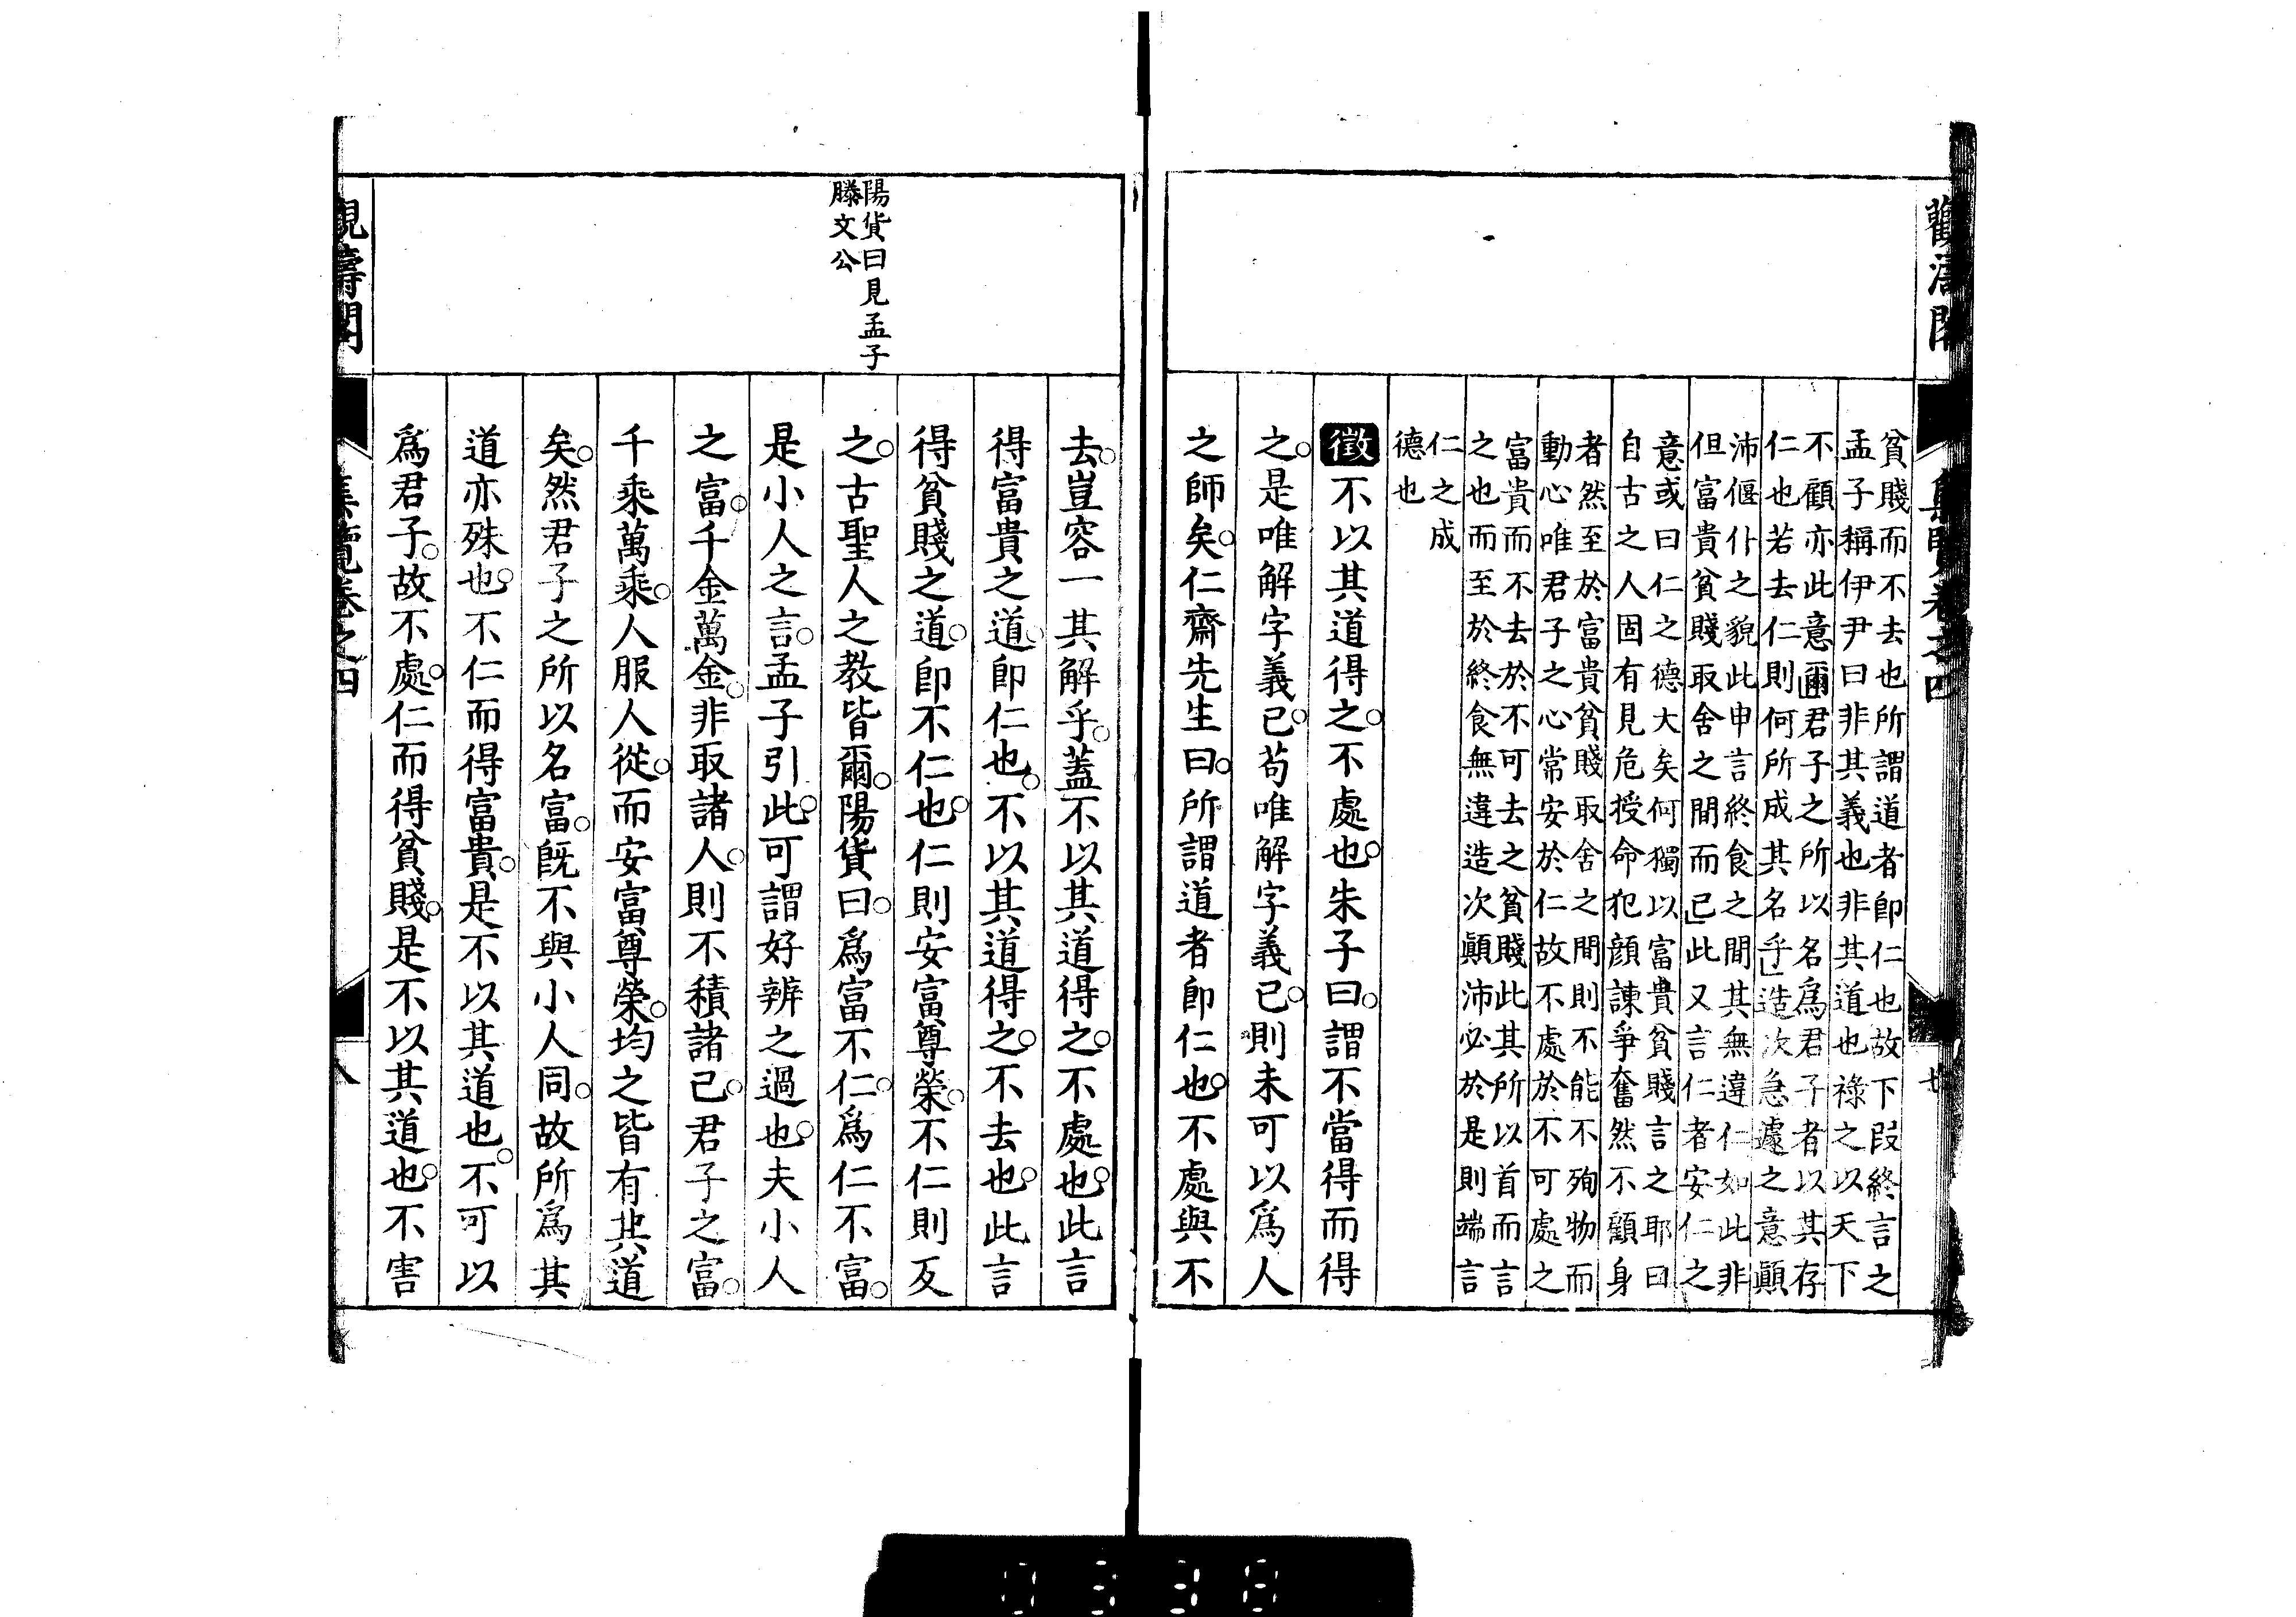 觀濤閣
貧賤而不去也所謂道者卽仁也故下段終言之
孟子稱伊尹曰非其義也非其道也祿之以天下
不顧亦此意爾」君子之所以名爲君子者以其存
仁也若去仁則何所成其名乎」造次急遽之意顚
沛偃仆之貌此申言終食之間其無違仁如此非
但富貴貧賤取舍之間而已」此又言仁者安仁之
意或曰仁之德大矣何獨以富貴貧賤言之耶曰
自古之人固有見危授命犯顔諫爭奮然不顧身
者然至於富貴貧賤取舍之間則不能不殉物而
動心唯君子之心常安於仁故不處於不可處之
富貴而不去於不可去之貧賤此其所以首而言
之也而至於終食無違造次顚沛必於是則端言
仁之成
德也
徵不以其道得之。不處也。朱子曰。謂不當得而得
之。是唯解字義已。苟唯解字義已。則未可以爲人
之師矣。仁齋先生曰。所謂道者卽仁也。不處與不
陽貨曰見孟子
滕文公
去。豈容一其解乎。蓋不以其道得之。不處也。此言
得富貴之道。卽仁也。不以其道得之。不去也。此言
得貧賤之道。卽不仁也。仁則安富尊榮。不仁則反
之。古聖人之教皆爾。陽貨曰。爲富不仁。爲仁不富。
是小人之言。孟子引此。可謂好辨之過也。夫小人
之富。千金萬金。非取諸人。則不積諸己。君子之富。
千乘萬乘。人服人從。而安富尊榮。均之皆有其道
矣。然君子之所以名富。旣不與小人同。故所爲其
道亦殊也。不仁而得富貴。是不以其道也。不可以
爲君子。故不處。仁而得貧賤。是不以其道也。不害
觀濤閣
集覽卷之四
八
0338